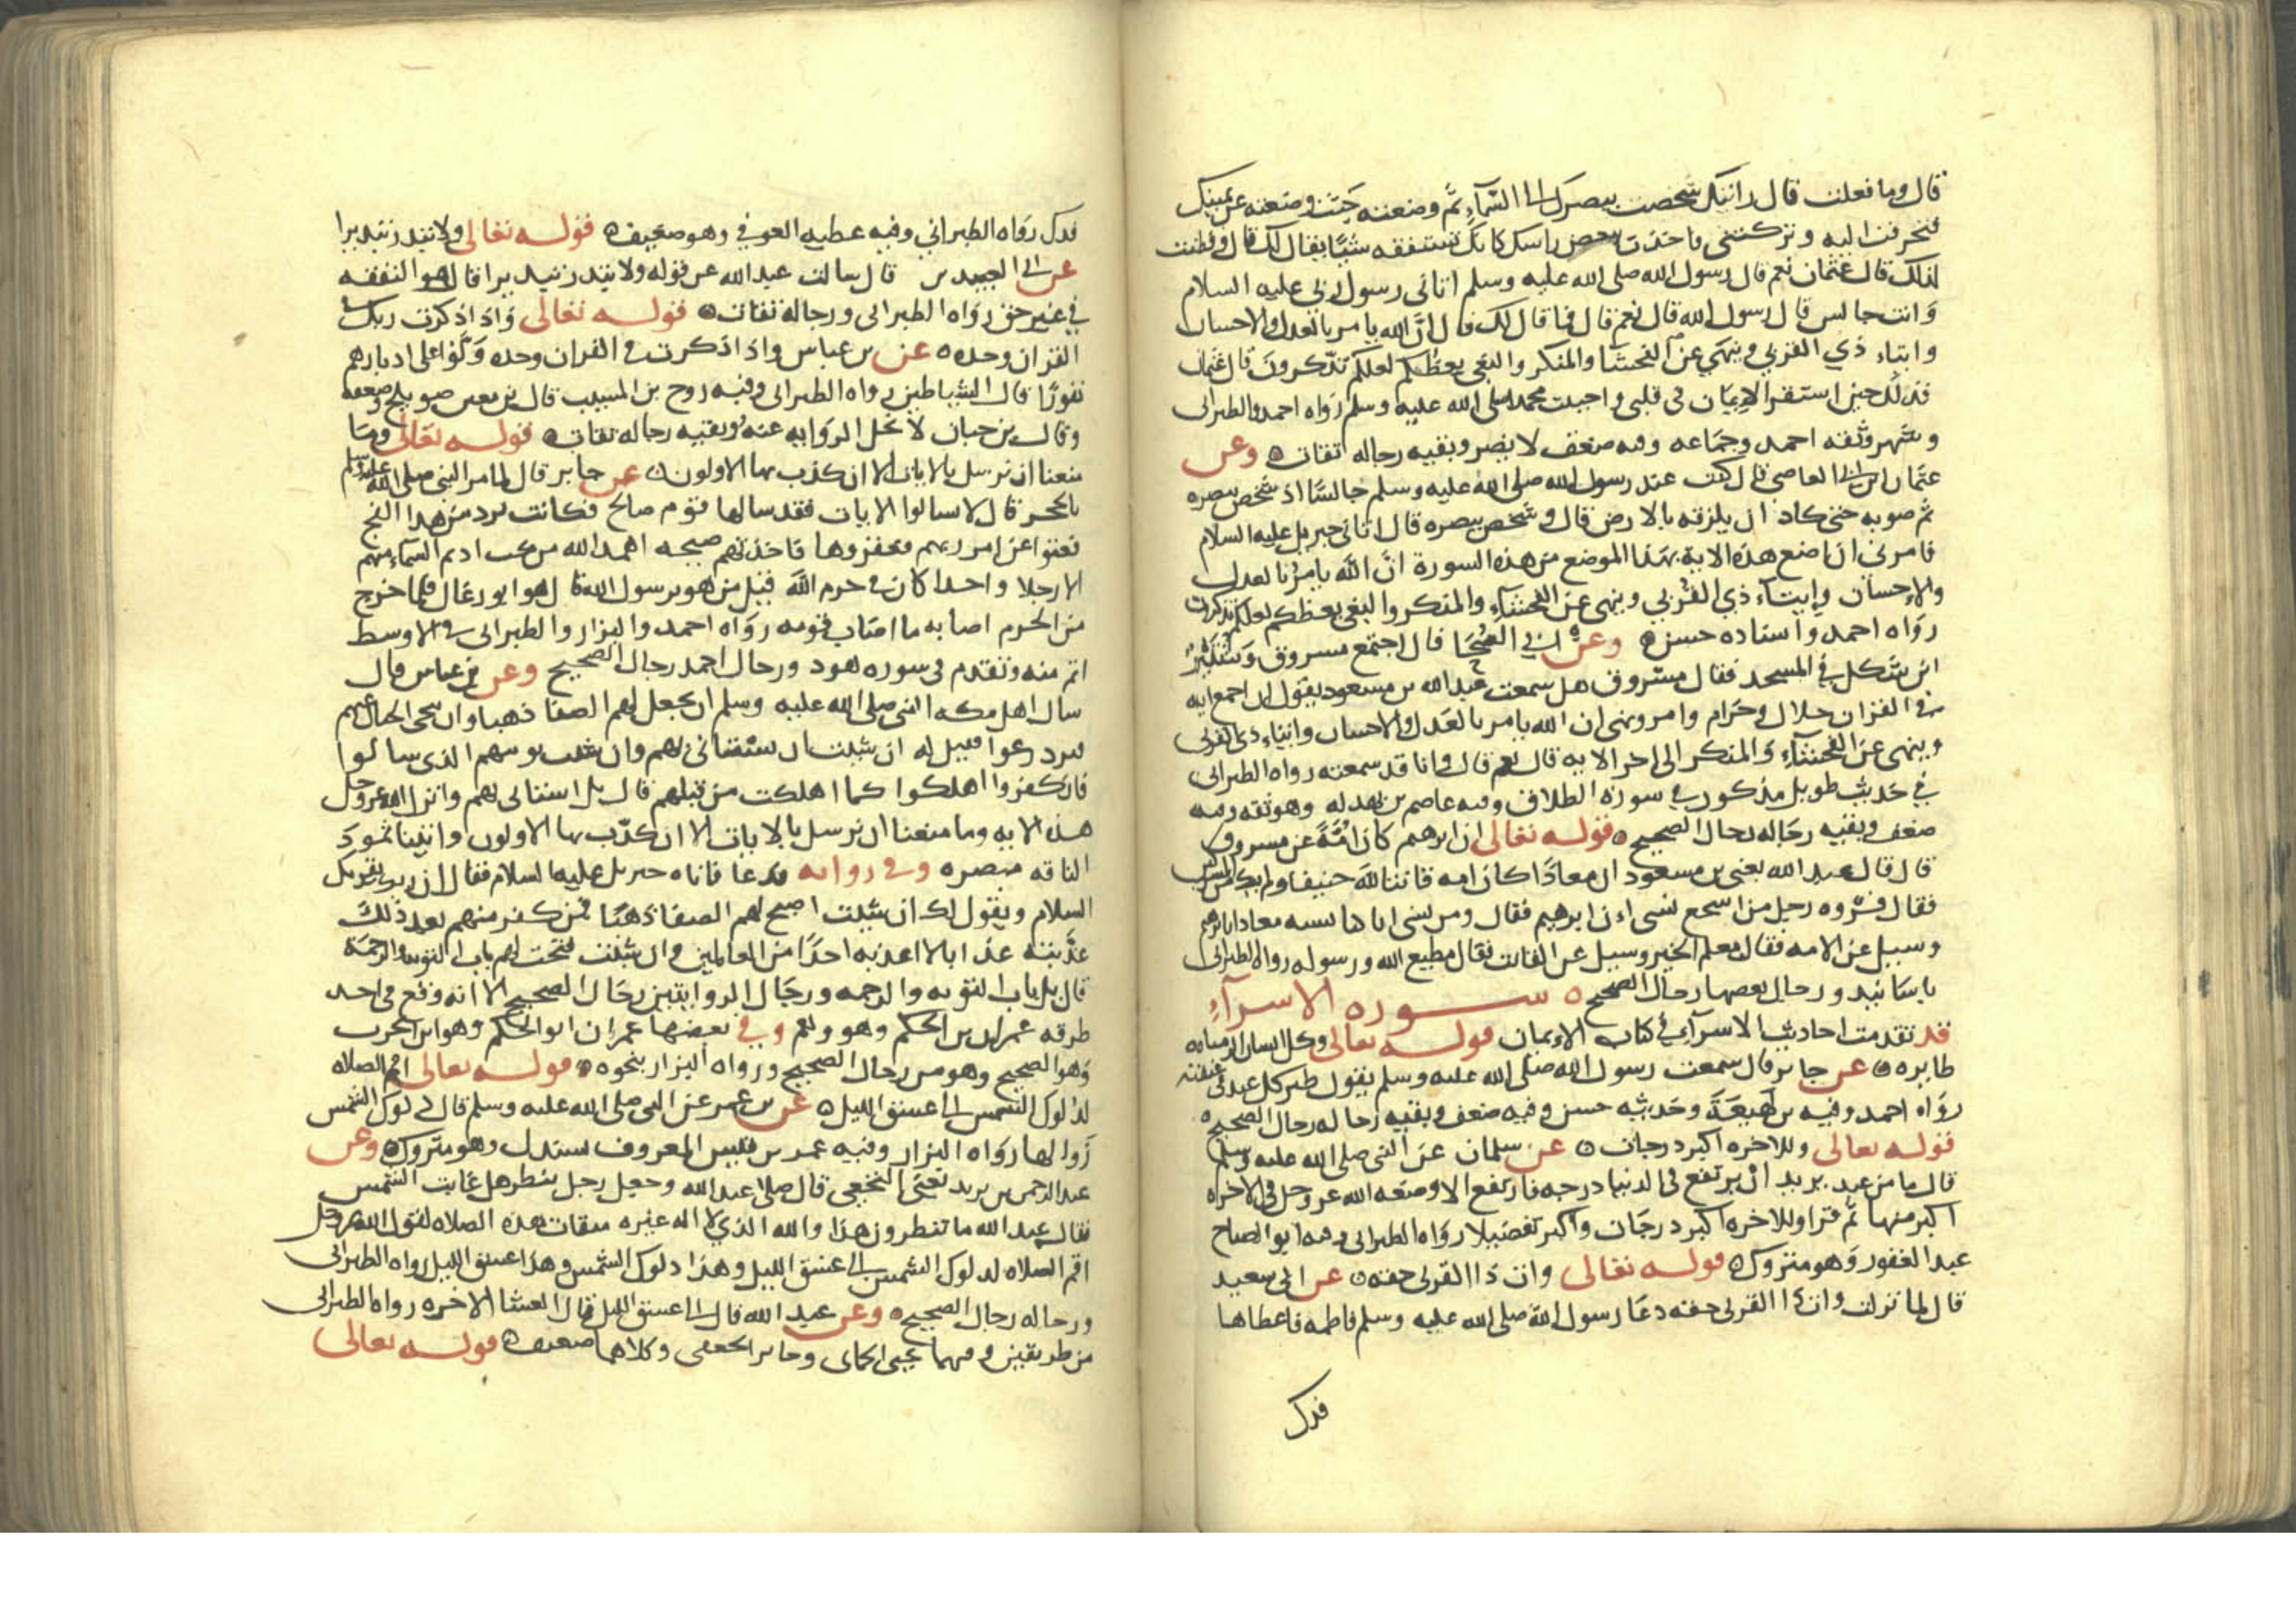 قال وما فعلت قال رايتك شخصت ببصرك الى السماء ثم وضعته حيث وضعته عن يمينك
فتحرفت اليه وتركتني فاخذت تنغض راسك كانك تستفقه شيئا يقال لك قال وفطنت
لذلك قال عثمان نعم قال رسول الله صلى الله عليه وسلم اتاني رسول ربي عليه السلام
وانت جالس قال رسول الله قال نعم قال فما قال لك قال ان الله يامر بالعدل والاحسان
وايتاء ذي القربى وينهى عن الفحشا والمنكر والبغي يعظكم لعلكم تذكرون قال عثمان
فذلك حين استقر الايمان في قلبي واحببت محمدا صلى الله عليه وسلم رواه احمد والطبراني
وشهر وثقه احمد وجماعه وفيه ضعف لا يضر وبقيه رجاله ثقات وعن
عثمان بن ابي العاصي قال كنت عند رسول الله صلى الله عليه وسلم جالسا اذ شخص ببصره
ثم صوبه حتى كاد ان يلزقه بالارض قال وشخص ببصره قال اتاني جبريل عليه السلام
فامرني ان اضع هذه الاية بهذا الموضع من هذه السورة ان الله يامر بالعدل
والإحسان وإيتاء ذي القربى وينهى عن الفحشاء والمنكر والبغي يعظكم لعلكم تذكرون
رواه احمد واسناده حسن وعن ابي الضحى قال اجتمع مسروق وشتير
ابن شكل في المسجد فقال مسروق هل سمعت عبد الله بن مسعود يقول ان اجمع ايه
في القران حلال وحرام وامر ونهي ان الله يامر بالعدل والاحسان وايتاء ذي القربى
وينهى عن الفحشاء والمنكر الى اخر الايه قال نعم قال وانا قد سمعته رواه الطبراني
في حديث طويل مذكور في سورة الطلاق وفيه عاصم بن بهدله وهو ثقه وفيه
ضعف وبقيه رجاله رجال الصحيح قوله تعالى ان ابرهيم كان امة عن مسروق
قال قال عبد الله يعني بن مسعود ان معاذا كان امه قانتا لله حنيفا ولم يك من المشركين
فقال فروه رجل من اشجع نسي ان ابرهيم فقال ومن نسي انا كنا نشبه معاذا بابرهيم
وسيل عن الامه فقال معلم الخير وسيل عن القانت فقال مطيع الله ورسوله رواه الطبراني
باسانيد ورجال بعضها رجال الصحيح سوره الاسرآء
قد تقدمت احاديث الاسرآء في كتاب الإيمان قوله تعالى وكل انسان الزمناه
طايره عن جابر قال سمعت رسول الله صلى الله عليه وسلم يقول طير كل عبد في عنقه
رواه احمد وفيه بن لهيعة وحديثه حسن وفيه ضعف وبقيه رجاله رجال الصحيح
قوله تعالى وللاخره اكبر درجات عن سلمان عن النبي صلى الله عليه وسلم
قال ما من عبد يريد ان يرتفع في الدنيا درجه فارتفع الا وضعه الله عز وجل في الاخره
اكبر منها ثم قرا وللاخره اكبر درجات واكبر تفضيلا رواه الطبراني وفيه ابو الصباح
عبد الغفور وهو متروك قوله تعالى وات ذا القربى حقه عن ابي سعيد
قال لما نزلت وات ذا القربى حقه دعا رسول الله صلى الله عليه وسلم فاطمه فاعطاها
فدك
فدك رواه الطبراني وفيه عطيه العوفي وهو ضعيف قوله تعالى ولا تبذر تبذيرا
عن ابي العبيدين قال سالت عبد الله عن قوله ولا تبذر تبذيرا قال هو النفقه
في غير حق رواه الطبراني ورجاله ثقات قوله تعالى واذا ذكرت ربك في
القران وحده عن بن عباس واذا ذكرت في القران وحده ولوا على ادبارهم
نفورا قال الشياطين رواه الطبراني وفيه روح بن المسيب قال بن معين صويلح وضعفه
وقال بن حبان لا تحل الروايه عنه وبقيه رجاله ثقات قوله تعالى وما
منعنا ان نرسل بالايات الا ان كذب بها الاولون عن جابر قال لما مر النبي صلى الله عليه وسلم
بالحجر قال لا تسالوا الايات فقد سالها قوم صالح فكانت ترد من هذا الفج
فعتوا عن امر ربهم وعقروها فاخذتهم صيحه اهمد الله من تحت اديم السماء منهم
الا رجلا واحدا كان في حرم الله قيل من هو يرسول الله قال هو ابو رغال فلما خرج
من الحرم اصابه ما اصاب قومه رواه احمد والبزار والطبراني في الاوسط
اتم منه وتقدم في سوره هود ورجال احمد رجال الصحيح وعن بن عباس قال
سال اهل مكه النبي صلى الله عليه وسلم ان يجعل لهم الصفا ذهبا وان ينحي الجبال عنهم
فيزدرعوا فقيل له ان شيت ان نستاني بهم وان شيت نوتيهم الذي سالوا
فان كفروا اهلكوا كما اهلكت من قبلهم قال بل استاني بهم وانزل الله عز وجل
هذه الايه وما منعنا ان نرسل بالايات الا ان كذب بها الاولون واتينا ثمود
الناقه مبصره وفي روايه فدعا فاتاه جبريل عليه السلام فقال ان ربك يقريك
السلام ويقول لك ان شيت اصبح لهم الصفا ذهبا فمن كفر منهم بعد ذلك
عذبته عذابا لا اعذبه احدا من العالمين وان شيت فتحت لهم باب التوبه والرحمة
قال بل باب التوبه والرحمه ورجال الروايتين رجال الصحيح الا انه وقع في احد
طرقه عمران بن الحكم وهو وهم وفي بعضها عمران ابو الحكم وهو ابن الحرث
وهو الصحيح وهو من رجال الصحيح ورواه البزار بنحوه قوله تعالى اقم الصلاه
لدلوك الشمس الى غسق الليل عن بن عمر عن النبي صلى الله عليه وسلم قال دلوك الشمس
زوالها رواه البزار وفيه عمر بن قيس المعروف بسندل وهو متروك وعن
عبد الرحمن بن يزيد يعني النخعي قال صلى عبد الله وجعل رجل ينظر هل غابت الشمس
فقال عبد الله ما تنظرون هذا والله الذي لا اله غيره ميقات هذه الصلاه لقول الله عز وجل
اقم الصلاه لدلوك الشمس الى غسق الليل وهذا دلوك الشمس وهذا غسق الليل رواه الطبراني
ورجاله رجال الصحيح وعن عبد الله قال الى غسق الليل قال العشا الاخره رواه الطبراني
من طريقين وفيهما يحيى الحماني وجابر الجعفي وكلاهما ضعيف قوله تعالى